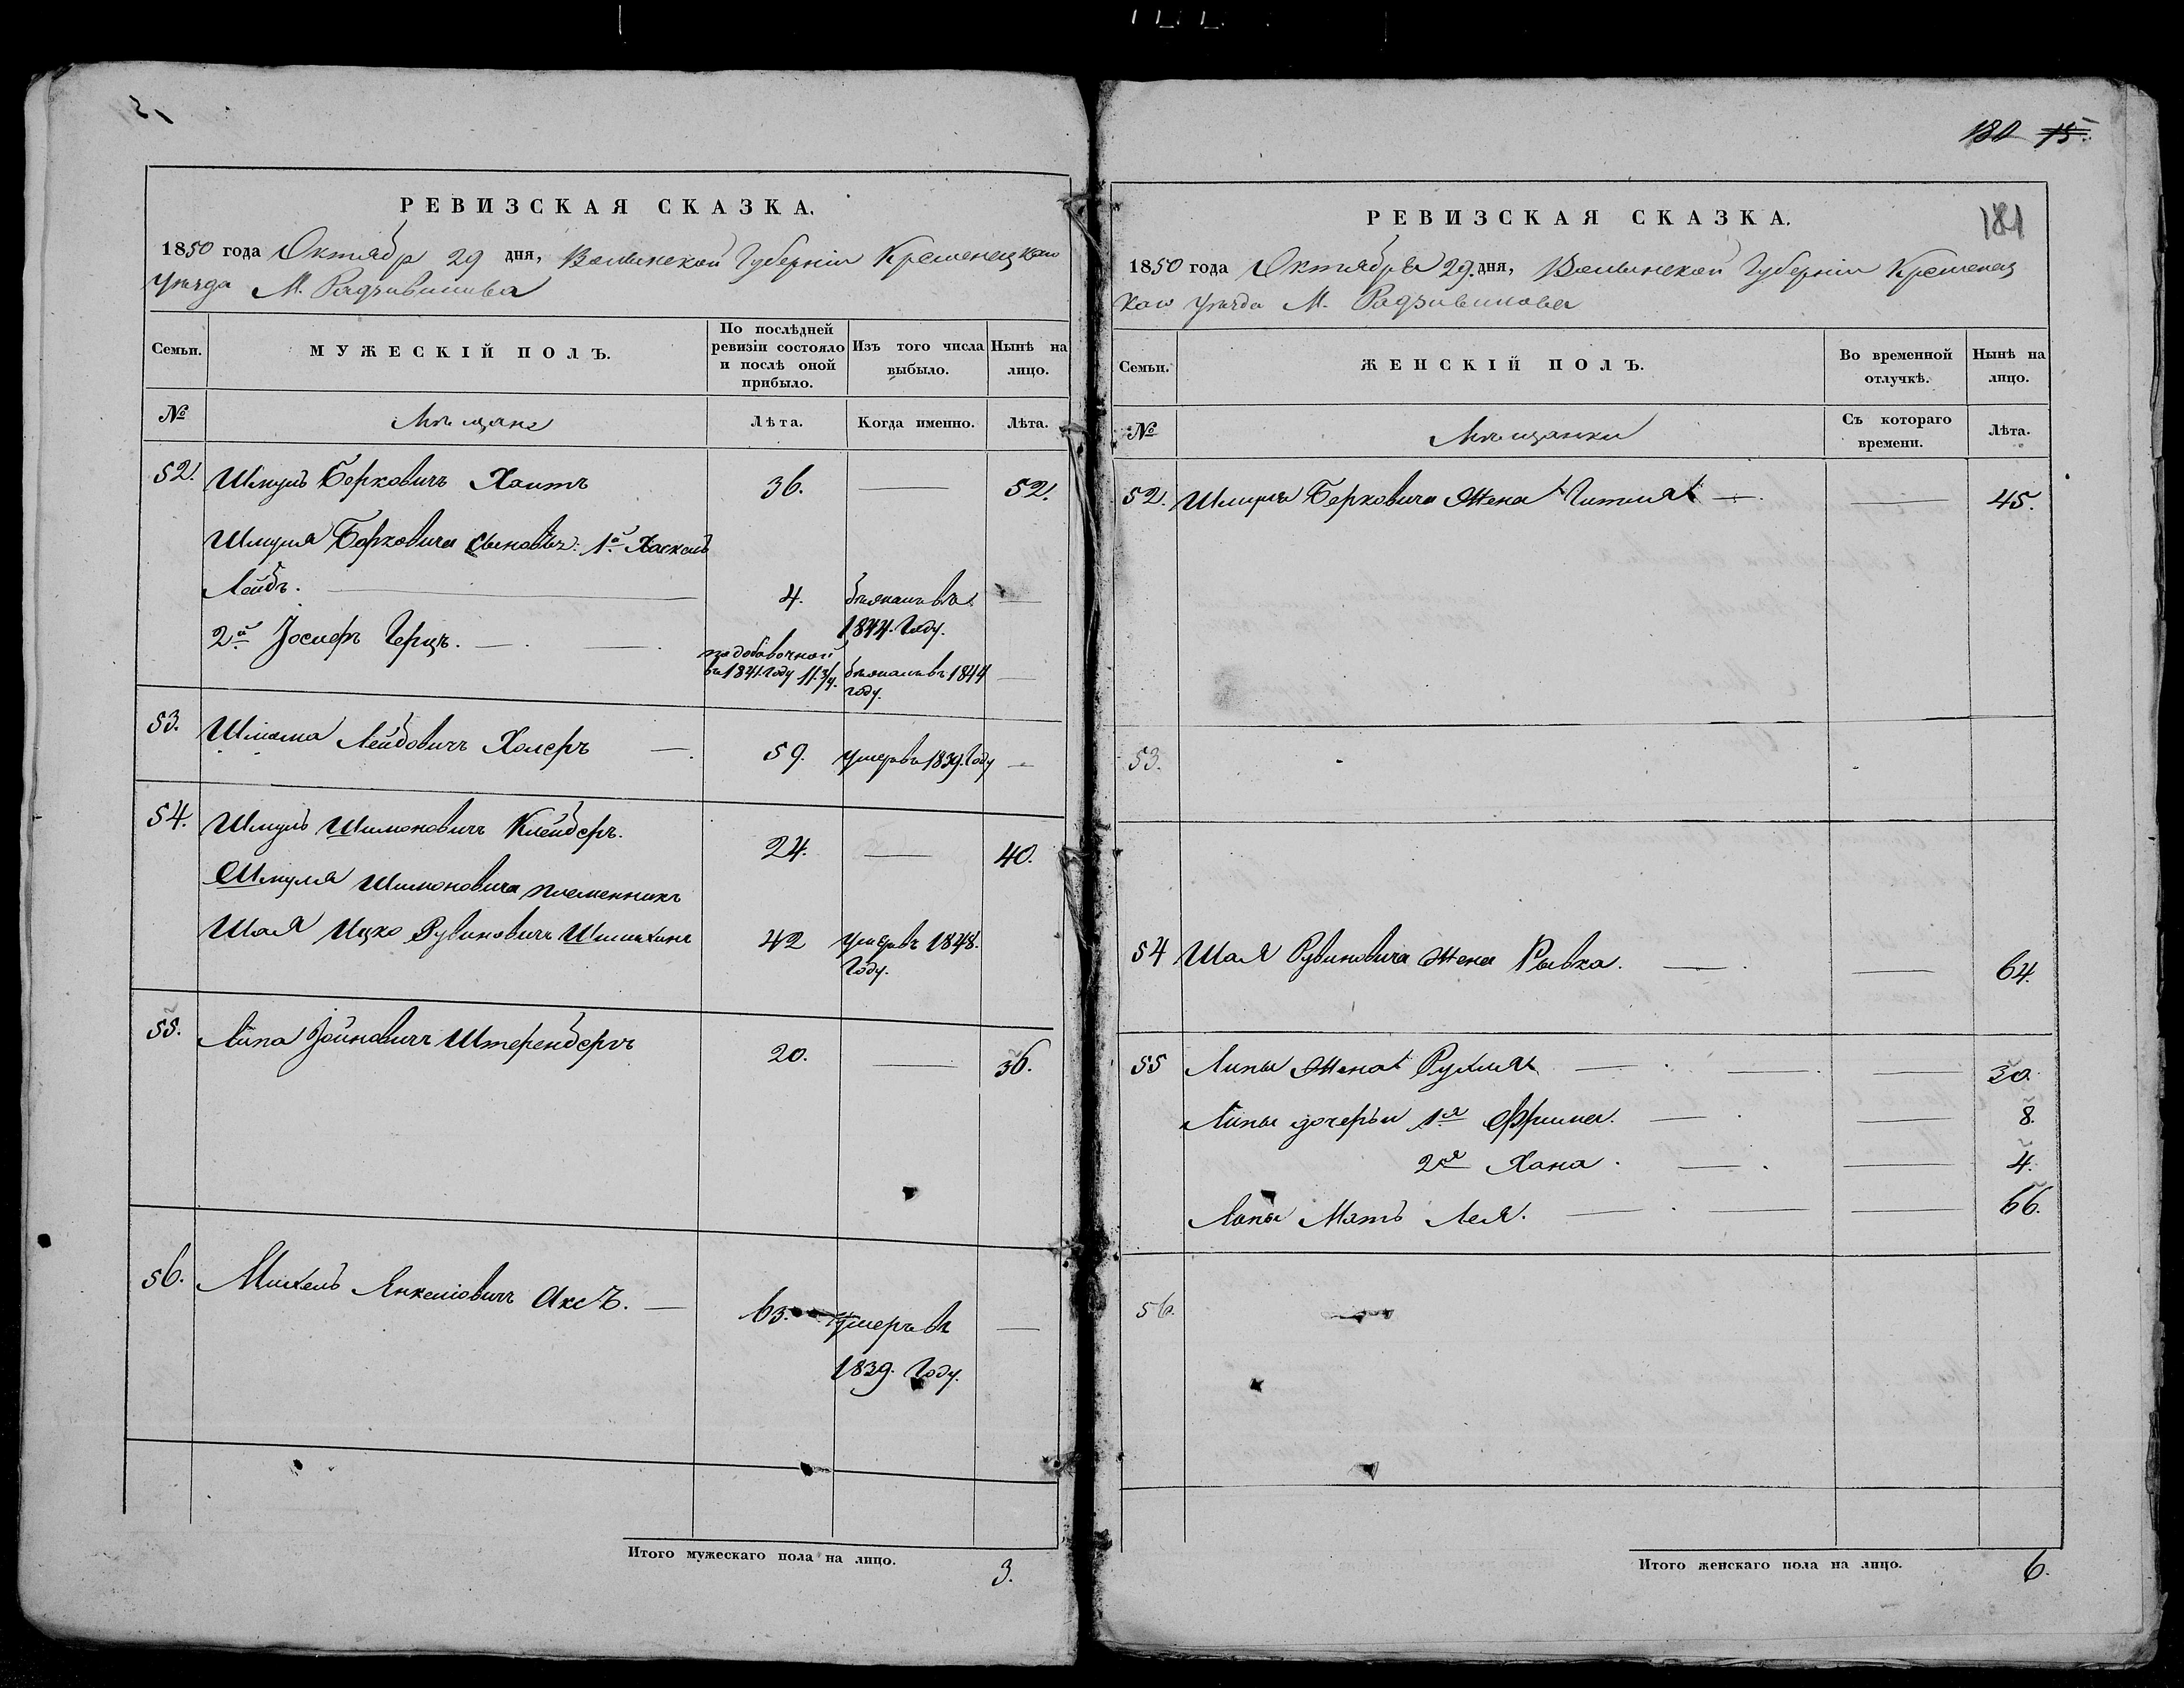 РЕВИЗСКАЯ СКАЗКА.
1850 года Октября 29 дня, Волынской Губерніи Кременецкаго
Уѣзда М. Радзивилова
Семьи.
МУЖЕСКІЙ ПОЛЪ.
По послѣдней ревизіи состояло и послѣ оной прибыло.
Изъ того числа выбыло.
Нынѣ на лицо.
№ Мѣщане Лѣта. Когда именно. Лѣта.
52. Шмуль Берковичъ Хаитъ 36. — 52.
Шмуля Берковича сыновья: 1й Хаскель
Лейбъ. — 4. бѣжалъ въ —
1844. Году.
2й Іосифъ Герцъ. — по добавочной
въ 1841 году 11 3/4. бѣжалъ въ 1844 —
году.
53. Шліома Лейбовичъ Холеръ — 59. умеръ въ 1839. Году —
54. Шмуль Шимоновичъ Клейберъ. 24. — 40.
Шмуля Шимоновича племенникъ
Шая Ицко Рувиновичъ 42 умеръ въ 1848.
Году.
55. Липа Штеренбергъ 20. — 36.
56. Михель Янкеліовичъ Аксъ. — 63. умеръ въ —
1839. Году.
Итого мужескаго пола на лицо. 3.
180 15.
181
РЕВИЗСКАЯ СКАЗКА.
1850 года Октября 29. дня, Волынской Губерніи Кременец
каго Уѣзда М. Радзивилова
Семьи.
ЖЕНСКІЙ ПОЛЪ.
Во временной отлучкѣ.
Нынѣ на лицо.
№ Мѣщанки Съ котораго времени. Лѣта.
52. Шмуля Берковича Жена Гитля — — 45.
53.
54 Шая Рувиновича Жена Рывка. — — 64.
55 Липы Жена Рухля — — 30.
Липы дочерьи 1я Фрима. — — 8.
2я Хана. — — 4.
Липы Мать Лея. — — 66.
56.
Итого женскаго пола на лицо. 6.